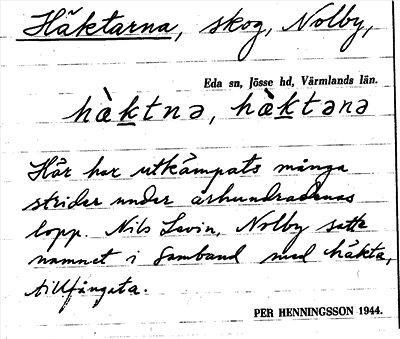 Häktarna, skog, Nolby,
Eda sn, Jösse hd, Värmlands län.
hàk̲tnə, hæ̀k̲tənə
Här har utkämpats många
strider under århundradenas
lopp. Nils Levin, Nolby satte
namnet i samband med häkta,
tillfångata.
PER HENNINGSSON 1944.